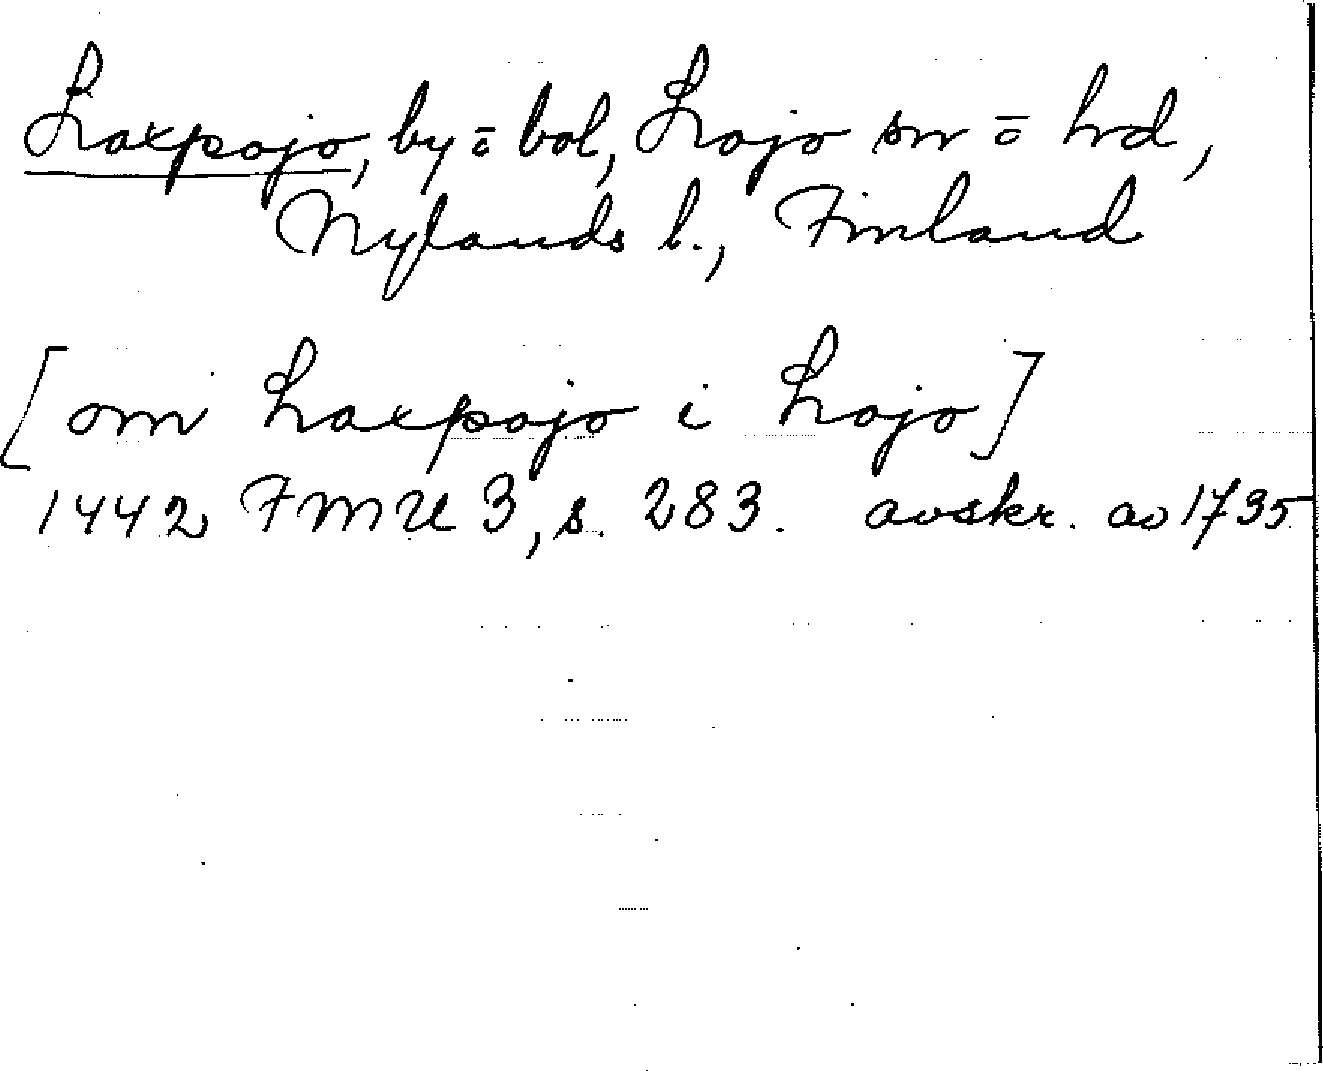 Laxpojo, by o bol, Lojo sn o hd,
Nylands l., Finland
[om Laxpojo i Lojo]
1442 FMU 3, s. 283. avskr. av 1735